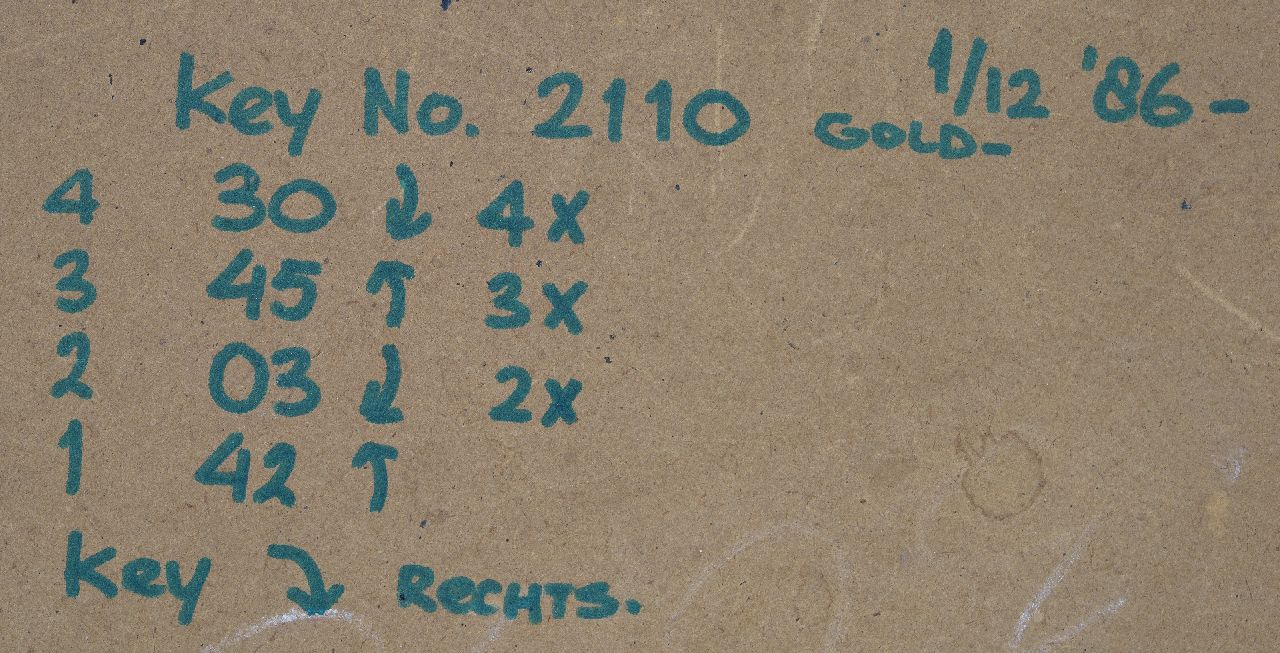 Key No. 2110 GOLD- 1/12 '86-
4 30 ↓ 4x
3 45 ↑ 3x
2 03 ↓ 2x
1 42 ↑
Key ↘ RECHTS.